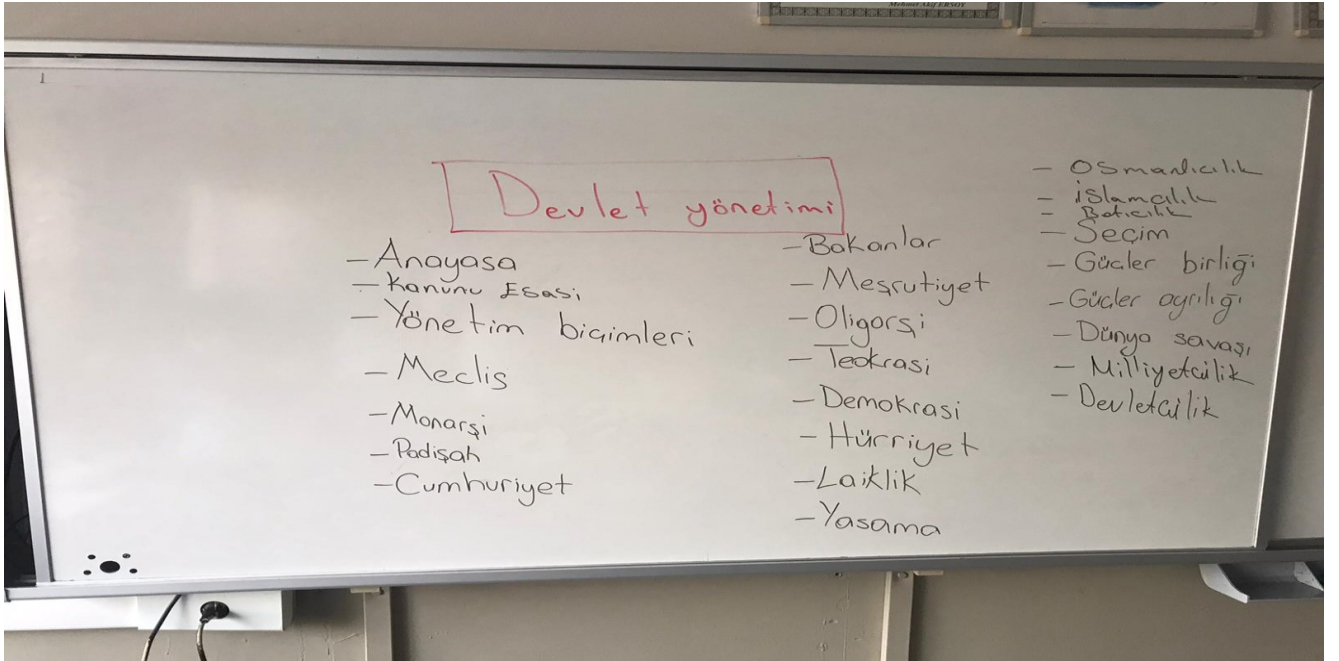 Mehmet Akif ERSOY
Devlet yönetimi
- Anayasa
- Kanunu Esasi
- Yönetim biçimleri
- Meclis
- Monarşi
- Padişah
- Cumhuriyet
- Bakanlar
- Meşrutiyet
- Oligarşi
- Teokrasi
- Demokrasi
- Hürriyet
- Laiklik
- Yasama
- Osmanlıcılık
- İslamcılık
- Batıcılık
- Seçim
- Güçler birliği
- Güçler ayrılığı
- Dünya savaşı
- Milliyetçilik
- Devletçilik